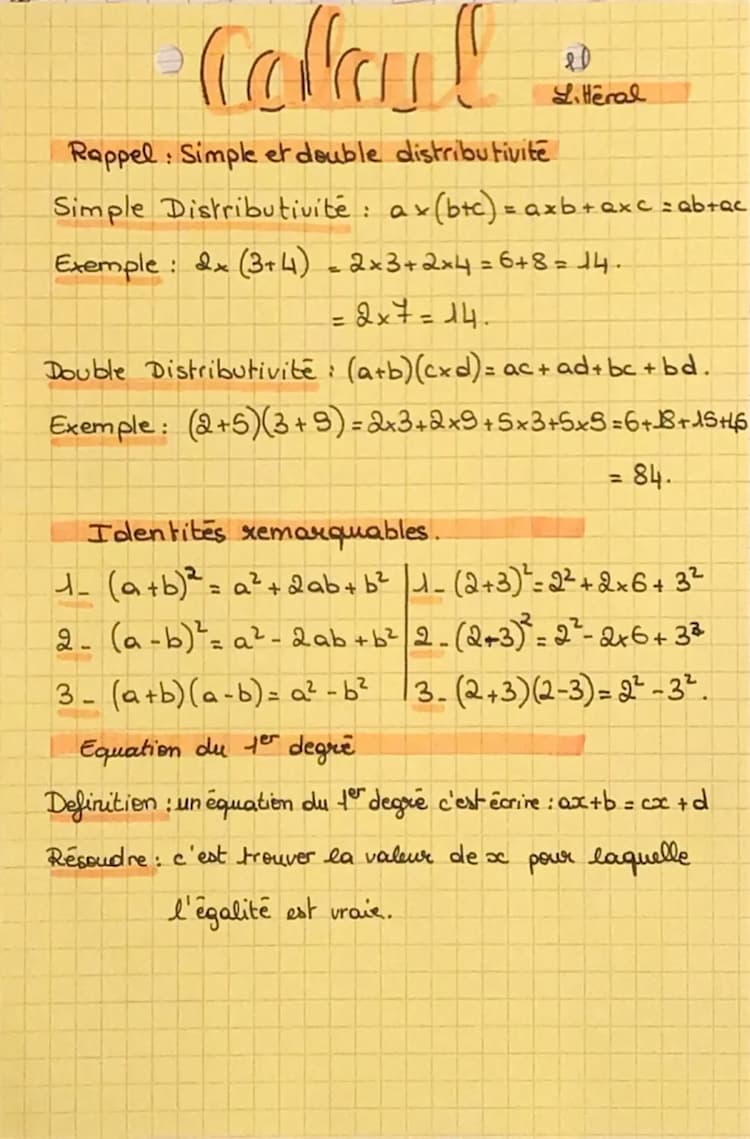 Calcul
Littéral
Rappel : Simple et double distributivité
Simple Distributivité : a x (b+c) = axb + axc = ab+ac
Exemple : 2x (3+4) = 2x3 + 2x4 = 6+8 = 14.
= 2x7 = 14.
Double Distributivité : (a+b)(cxd) = ac + ad + bc + bd.
Exemple : (2+5)(3+9) = 2x3+2x9+5x3+5x9 = 6+18+15+45
= 84.
Identités remarquables.
1- (a+b)² = a² + 2ab + b² | 1- (2+3)² = 2² + 2x6 + 3²
2- (a-b)² = a² - 2ab + b² | 2- (2-3)² = 2² - 2x6 + 3²
3- (a+b)(a-b) = a² - b² | 3- (2+3)(2-3) = 2² - 3².
Equation du 1er degré
Definition : un équation du 1er degré c'est écrire : ax+b = cx + d
Résoudre : c'est trouver la valeur de x pour laquelle
l'égalité est vraie.